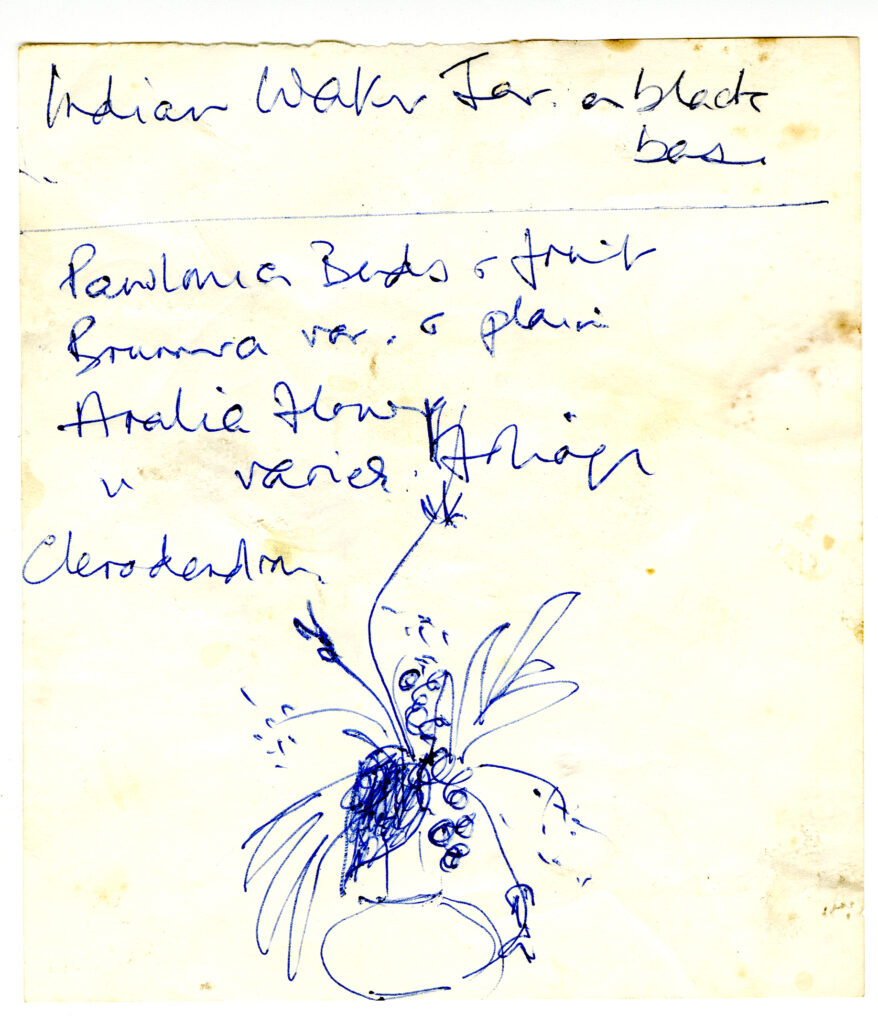 Indian Water Jar. on black
base.
Pawlonia Buds & fruit
Brunnera var. & plain
Aralia Flower
" varieg. Foliage
Clerodendron